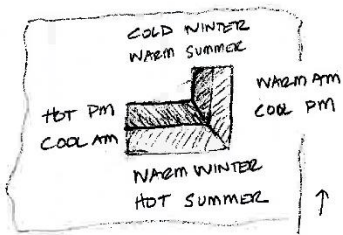 COLD WINTER
WARM SUMMER
WARM AM
COOL PM
HOT PM
COOL AM
WARM WINTER
HOT SUMMER